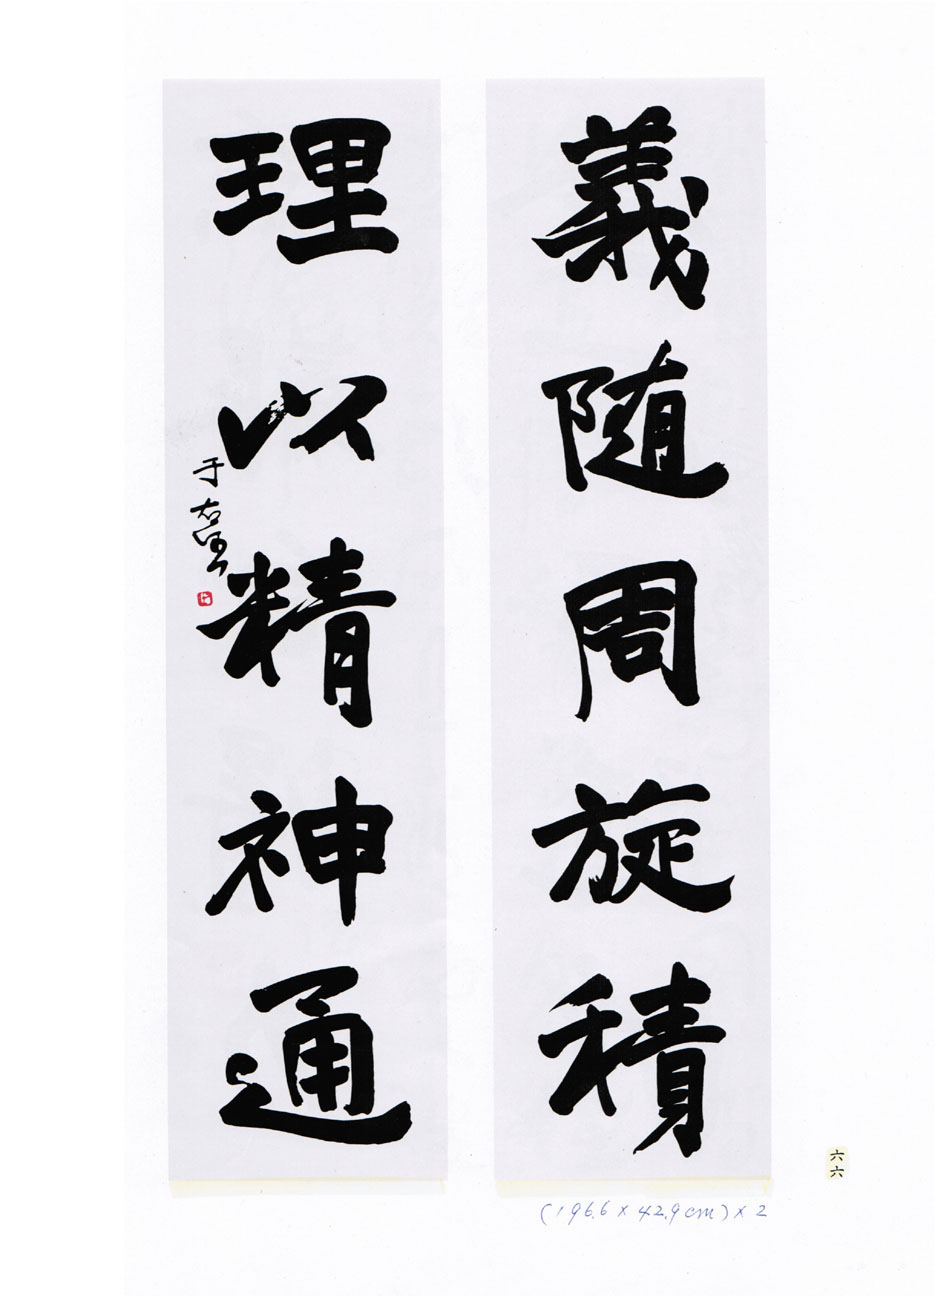 義随周旋積
理以精神通
于右任
六六
(196.6 x 42.9 cm) x 2